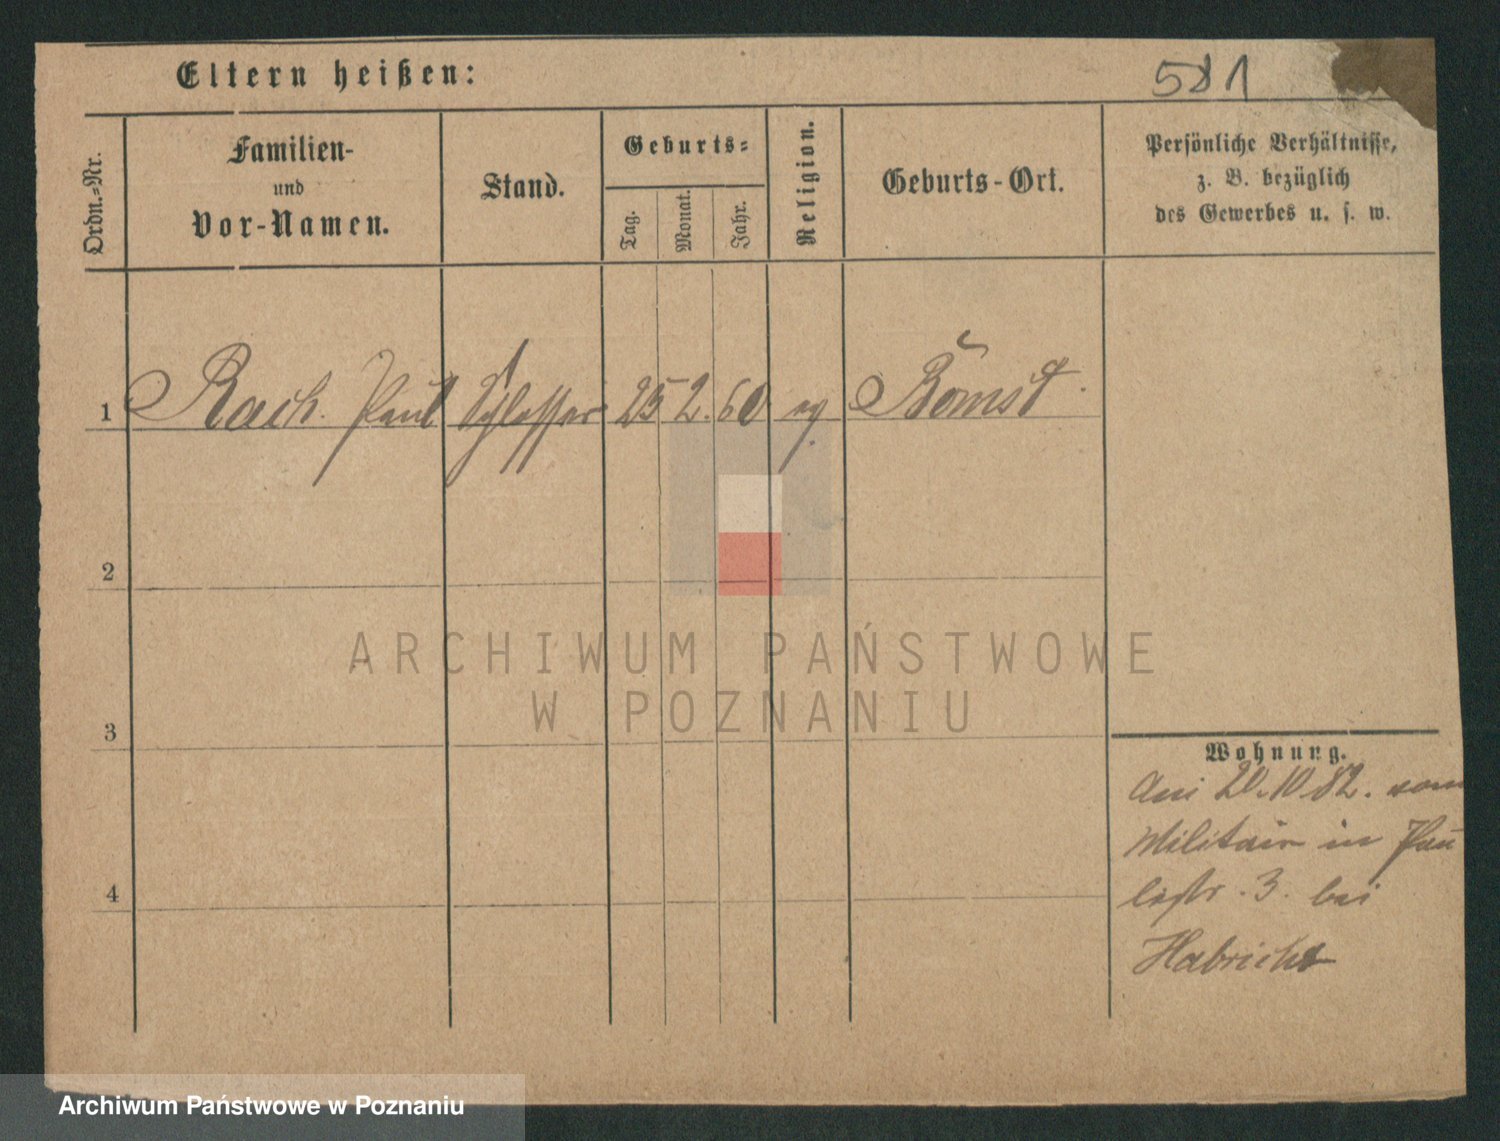 Eltern heißen:
581
Ordn.-Nr.
Familien-
und
Vor-Namen.
Stand.
Geburts-
Tag.
Monat.
Jahr.
Religion.
Geburts-Ort.
Persönliche Verhältnisse,
z. B. bezüglich
des Gewerbes u. s. w.
1 Rach. Paul Schlosser 25 2. 60 eg Bomst
2
3
4
Wohnung.
Aus 20.10 82. vom
Militair in Pau
listr. 3. bei
Habricht
ARCHIWUM PAŃSTWOWE
W POZNANIU
Archiwum Państwowe w Poznaniu